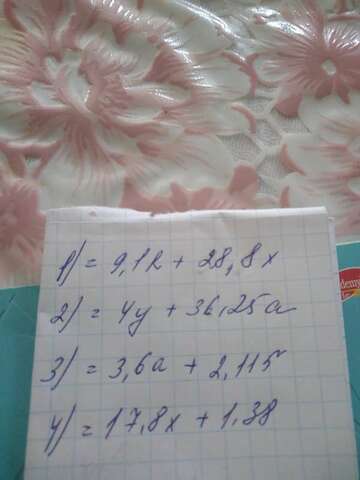 1) = 9,1k + 28,8x
2) = 4y + 36,25a
3) = 3,6a + 2,115
4) = 17,8x + 1,38